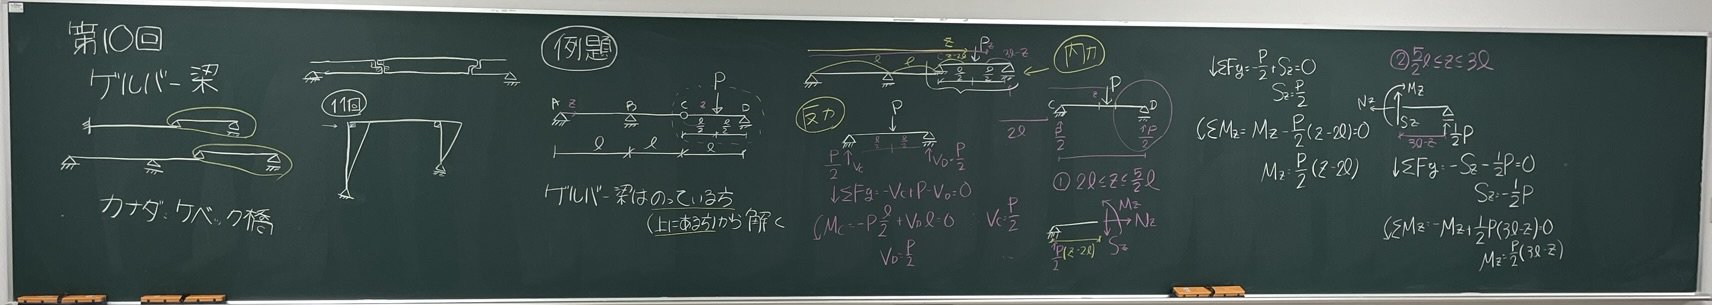 第10回
ゲルバー梁
11回
カナダ、ケベック橋
例題
P
A z B C z D
l/2 l/2
l l l
ゲルバー梁はのっている方
(上にある方)から解く
z
z-2l P 3l-z
l l l/2 l/2
反力
P
l/2 l/2
P/2 Vc VD=P/2
↓ΣFy=-Vc+P-VD=0
Mc=-P l/2+VDl=0 Vc=P/2
VD=P/2
内力
P
C z D
2l P/2 P/2
① 2l≦z≦5/2l
Mz
Nz
Sz
P/2 (z-2l)
↓ΣFy=-P/2+Sz=0
Sz=P/2
ΣMz=Mz-P/2(z-2l)=0
Mz=P/2(z-2l)
② 5/2l≦z≦3l
Mz
Nz
Sz
3l-z 1/2P
↓ΣFy=-Sz-1/2P=0
Sz=-1/2P
ΣMz=-Mz+1/2P(3l-z)=0
Mz=P/2(3l-z)